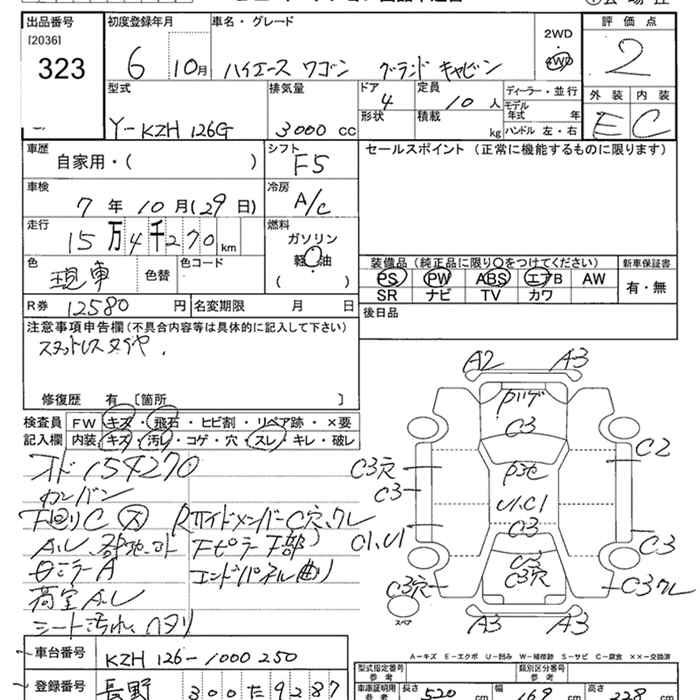 出品番号
[2036]
323
初度登録年月
6 10月
車名・グレード
ハイエース ワゴン グランド キャビン
2WD
4WD
評価点
2
外装 内装
E C
型式
Y-KZH 126G
排気量
3000 cc
ドア 4
形状
定員 10 人
積載 kg
ディーラー・並行
モデル年式 年
ハンドル 左・右
車歴
自家用・( )
シフト
F5
セールスポイント (正常に機能するものに限ります)
車検
7年10月(29日)
冷房
A/C
走行
15万4千270km
燃料
ガソリン
軽油
( )
色
現車
色替
色コード
装備品 (純正品に限り○をつけてください)
PS PW ABS エアB AW
SR ナビ TV カワ
新車保証書
有・無
R券 12580円
名変期限 月 日
後日品
注意事項申告欄(不具合内容等は具体的に記入して下さい)
スタットレスタイヤ.
修復歴 有 [箇所 ]
検査員記入欄
FW キズ・飛石・ヒビ割・リペア跡・×要
内装 キズ・汚レ・コゲ・穴・スレ・キレ・破レ
154270
カンバン
A
シート汚れ、ヘタリ
A2 A3
C3
C2
C3穴
C3
U1.C1
C3
C1,U1
C3
C3
C3穴
C3穴
スペア
A3 A3
A-キズ E-エクボ U-凹み W-補修跡 S-サビ C-腐食 ××-交換済
車台番号
KZH 126-1000250
登録番号
長野 300 た 9287
型式指定番号
参考
類別区分番号
参考
車庫証明用
参考
長さ 520 cm
幅 169 cm
高さ 228 cm